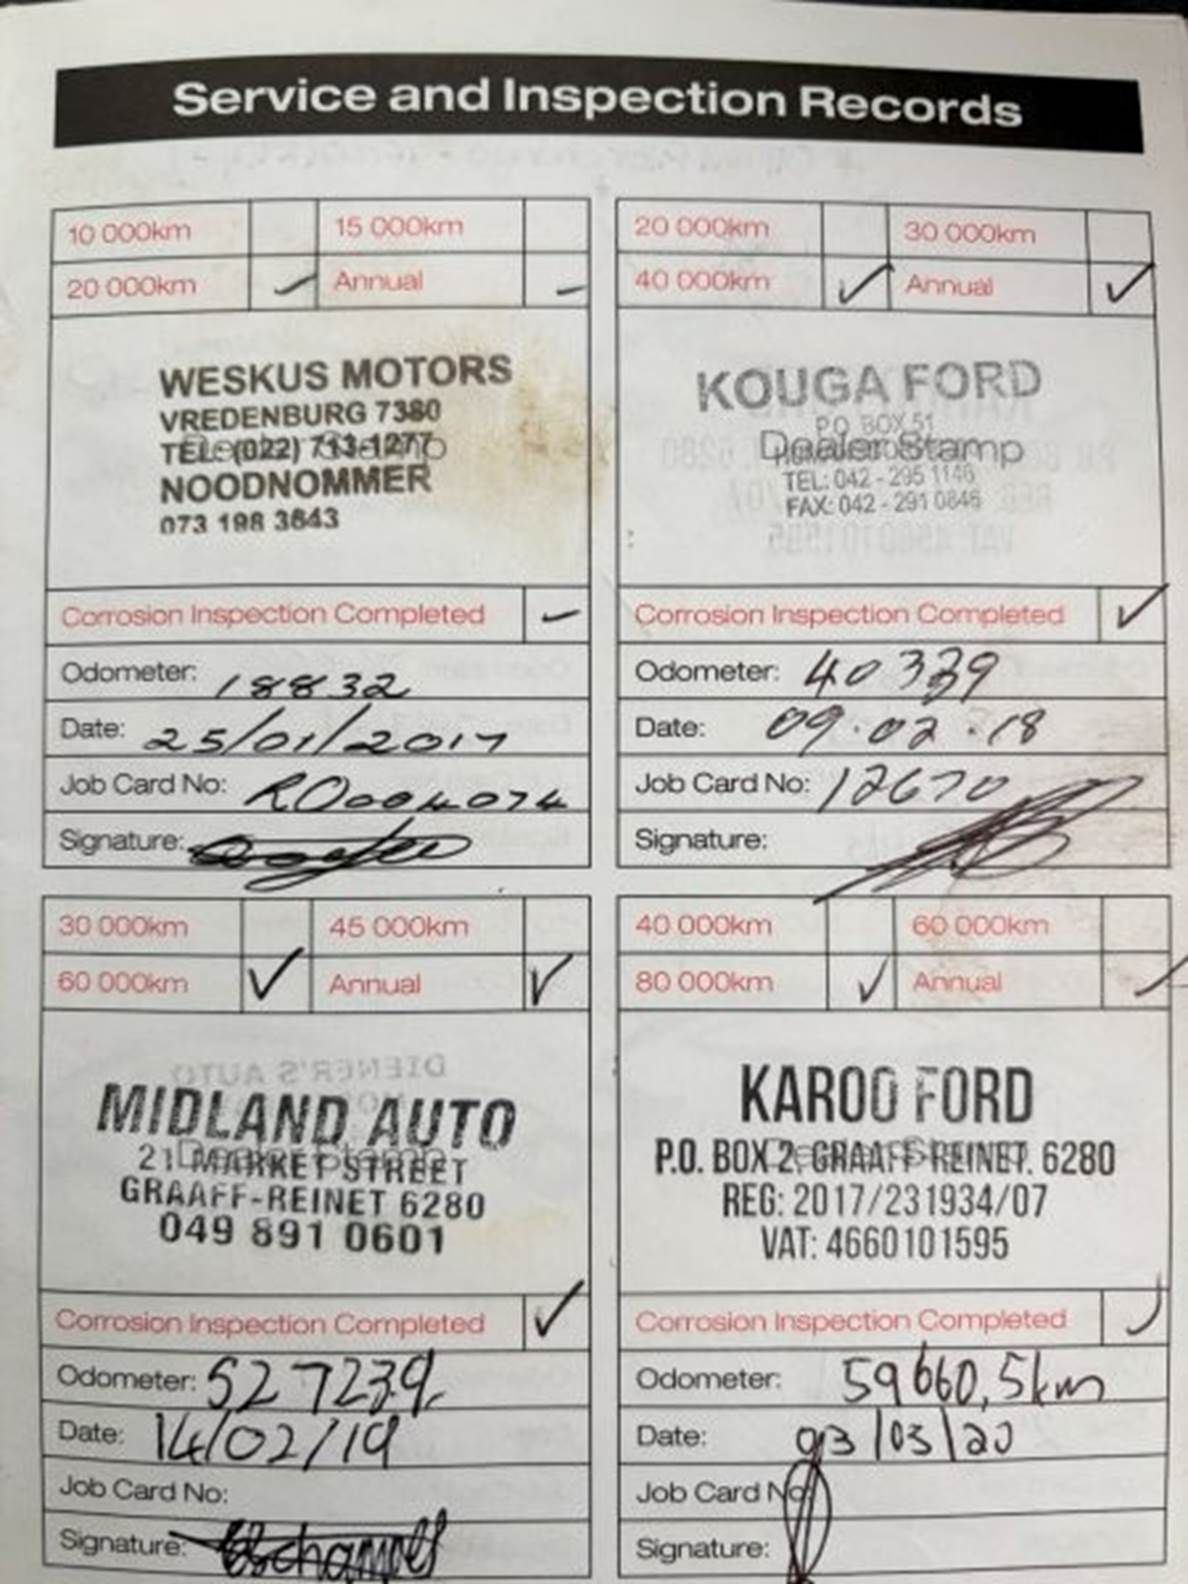 Service and Inspection Records
10 000km 15 000km
20 000km Annual
WESKUS MOTORS
VREDENBURG 7380
TEL: (022) 713-1277
Dealer Stamp
NOODNOMMER
073 198 3643
Corrosion Inspection Completed
Odometer: 18832
Date: 25/01/2017
Job Card No: RO004074
Signature:
20 000km 30 000km
40 000km Annual
KOUGA FORD
P.O. BOX 51
Dealer Stamp
TEL: 042 - 295 1146
FAX: 042 - 291 0846
Corrosion Inspection Completed
Odometer: 40339
Date: 09.02.18
Job Card No: 12670
Signature:
30 000km 45 000km
60 000km Annual
DIENER'S AUTO
MIDLAND AUTO
Dealer Stamp
21 MARKET STREET
GRAAFF-REINET 6280
049 891 0601
Corrosion Inspection Completed
Odometer: 527239
Date: 14/02/19
Job Card No:
Signature:
40 000km 60 000km
80 000km Annual
KAROO FORD
P.O. BOX 2, GRAAFF-REINET. 6280
REG: 2017/231934/07
VAT: 4660101595
Corrosion Inspection Completed
Odometer: 59660,5km
Date: 03/03/20
Job Card No:
Signature: